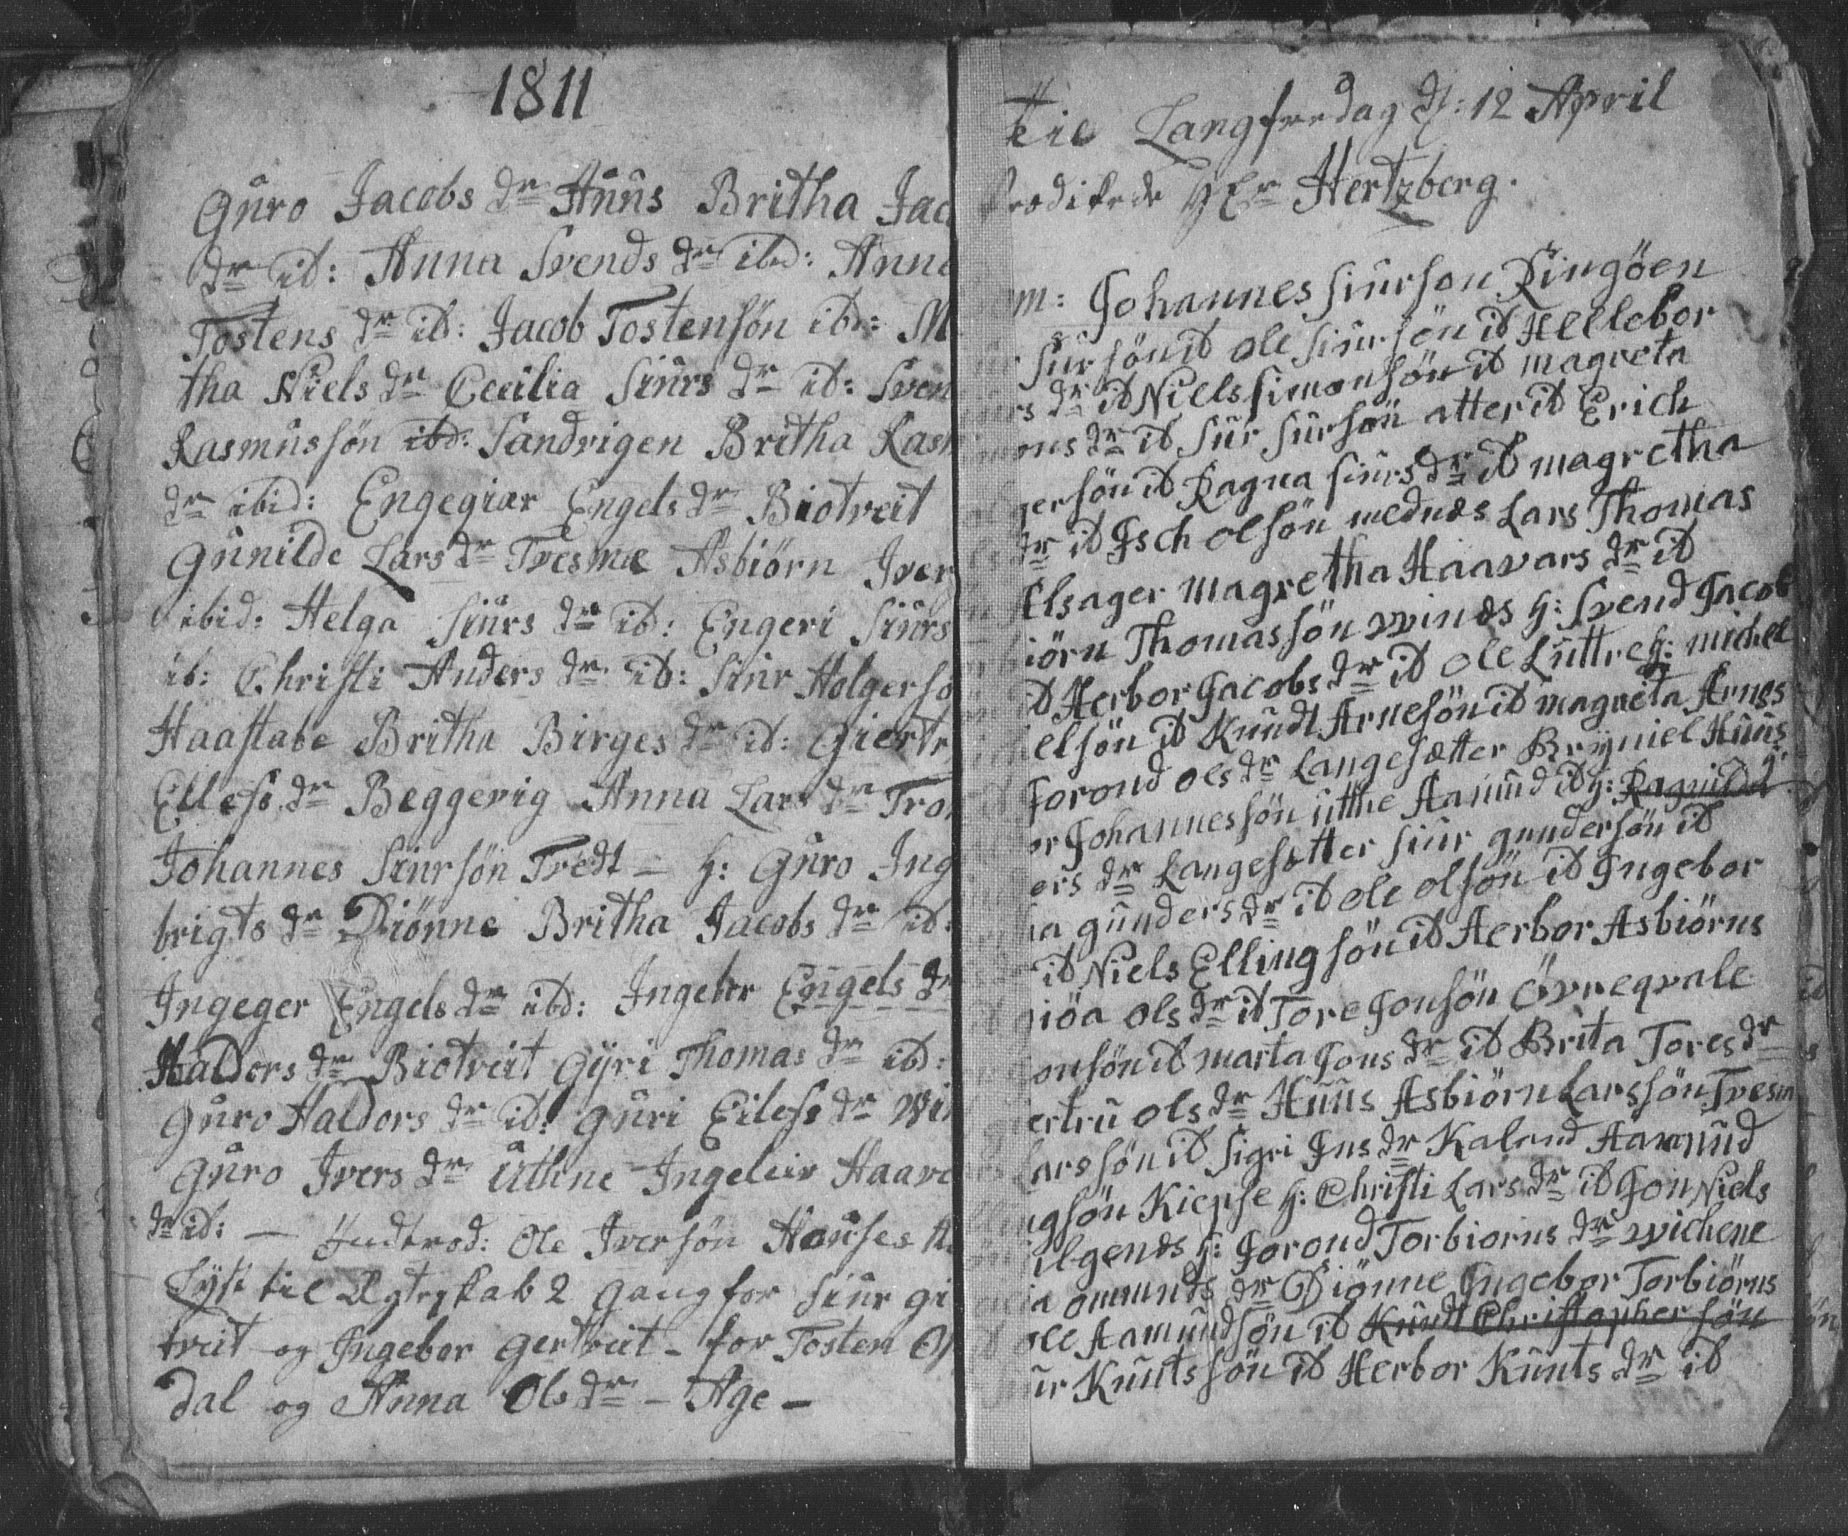 1811
Guro Jacobs dr Huus Britha Jac
dr id: Anna Svends dr ibd: Anna
Tostens dr id: Jacob Tostensön ibd: M
tha Niels dr Cecilia Siurs dr id: Sven
Rasmussön ibd: Sandvigen Britha Rasm
dr ibid: Engegiar Engels dr Biotveit
Gunilde Lars dr Tvesme Asbiörn Iver
ibid: Helga Siurs dr id: Engeri Siurs
ib: Christi Anders dr id: Siur Holgersö
Haastabe Britha Birges dr id: Giertr
Ellefs dr Beggevig Anna Lars dr Tro
Johannes Siursön Tredt – h: Guro Ing
brigts dr Diönne Britha Jacobs dr id:
Ingeger Engels dr ibd: Ingebor Engels dr
Haldors dr Biotveit Gÿri Thomas dr ibd:
Guro Haldors dr id: Guri Eilefs dr Wi
Guro Ivers dr Uthne Ingeleiv Haav
dr id: — Indtrod: Ole Iversön Hauses
Lyst til Ægteskab 2 Gang for Siur
treit og Ingebor Gertveit – for Tosten
dal og Anna Ols dr – Age –
tie Langfredag d: 12 April
Prædikede Hr Hertzberg.
m: Johannes Siurson Ringöen
Siursön id Ole Siursön id Hellebor
rs dr id Niels Simonsön id Magreta
ons dr id Siur Siursön atter id Erich
gersön id Ragna Siurs dr id Magretha
dr id Isch Olsön Mednæs Lars Thomas
Elsager Magretha Haavars dr id
iörn Thomassön Winæs h: Svend Jacob
id Herbor Jacobs dr id Ole Luttre h: Michel
elsön id Kundt Arnesön id Magreta Arnes
Jorond Ols dr Langesætter Brÿniel Huus
or Johannessön Utthe Aamund id h: Ragnilda
ers dr Langesætter Siur Gundersön id
ia Gunders dr id Ole Olsön id Ingebor
id Niels Ellingsön id Herbor Asbiörns
iöa Ols dr id Tore Jonsön Övreqvale
onsön id Marta Jons dr id Brita Tores dr
ertru Ols dr Huus Asbiörn Larssön Tvesm
arssön id Sigri Jns dr Kaland Aamund
ngsön Kiepse h: Christi Lars dr id Jon Niels
ilgenæs h: Jorond Torbiorns dr Wichene
ia Ommunts dr Diönne Ingebor Torbiörns
ole Aamundsön id Kundt Christophersön
ur Kuntsön id Herbor Kunts dr id